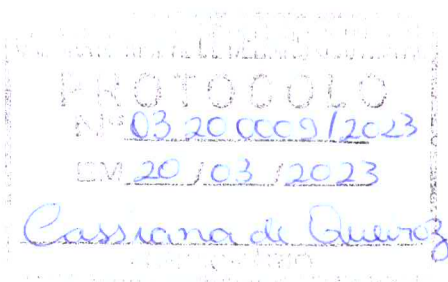 PROTOCOLO
Nº 03.200009/2023
EM 20/03/2023
Cassiana de Queiroz